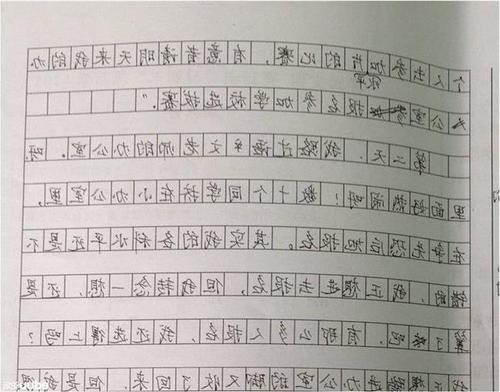 个人去参加书的比赛，有意者请明天来我的办
公室报名参加学校选拔赛。”
第二天，我路过语文老师的办公室。呀，
里面好热闹呀！数十个同学挤在小办公室里，
在争先恐后地报名。其实我的各科水平还是不
错的，我正想进去报名，但我转念一想，还是
算了吧，有那么多人报名，我还选得上吗？
办公室的脚又收了回来。但是